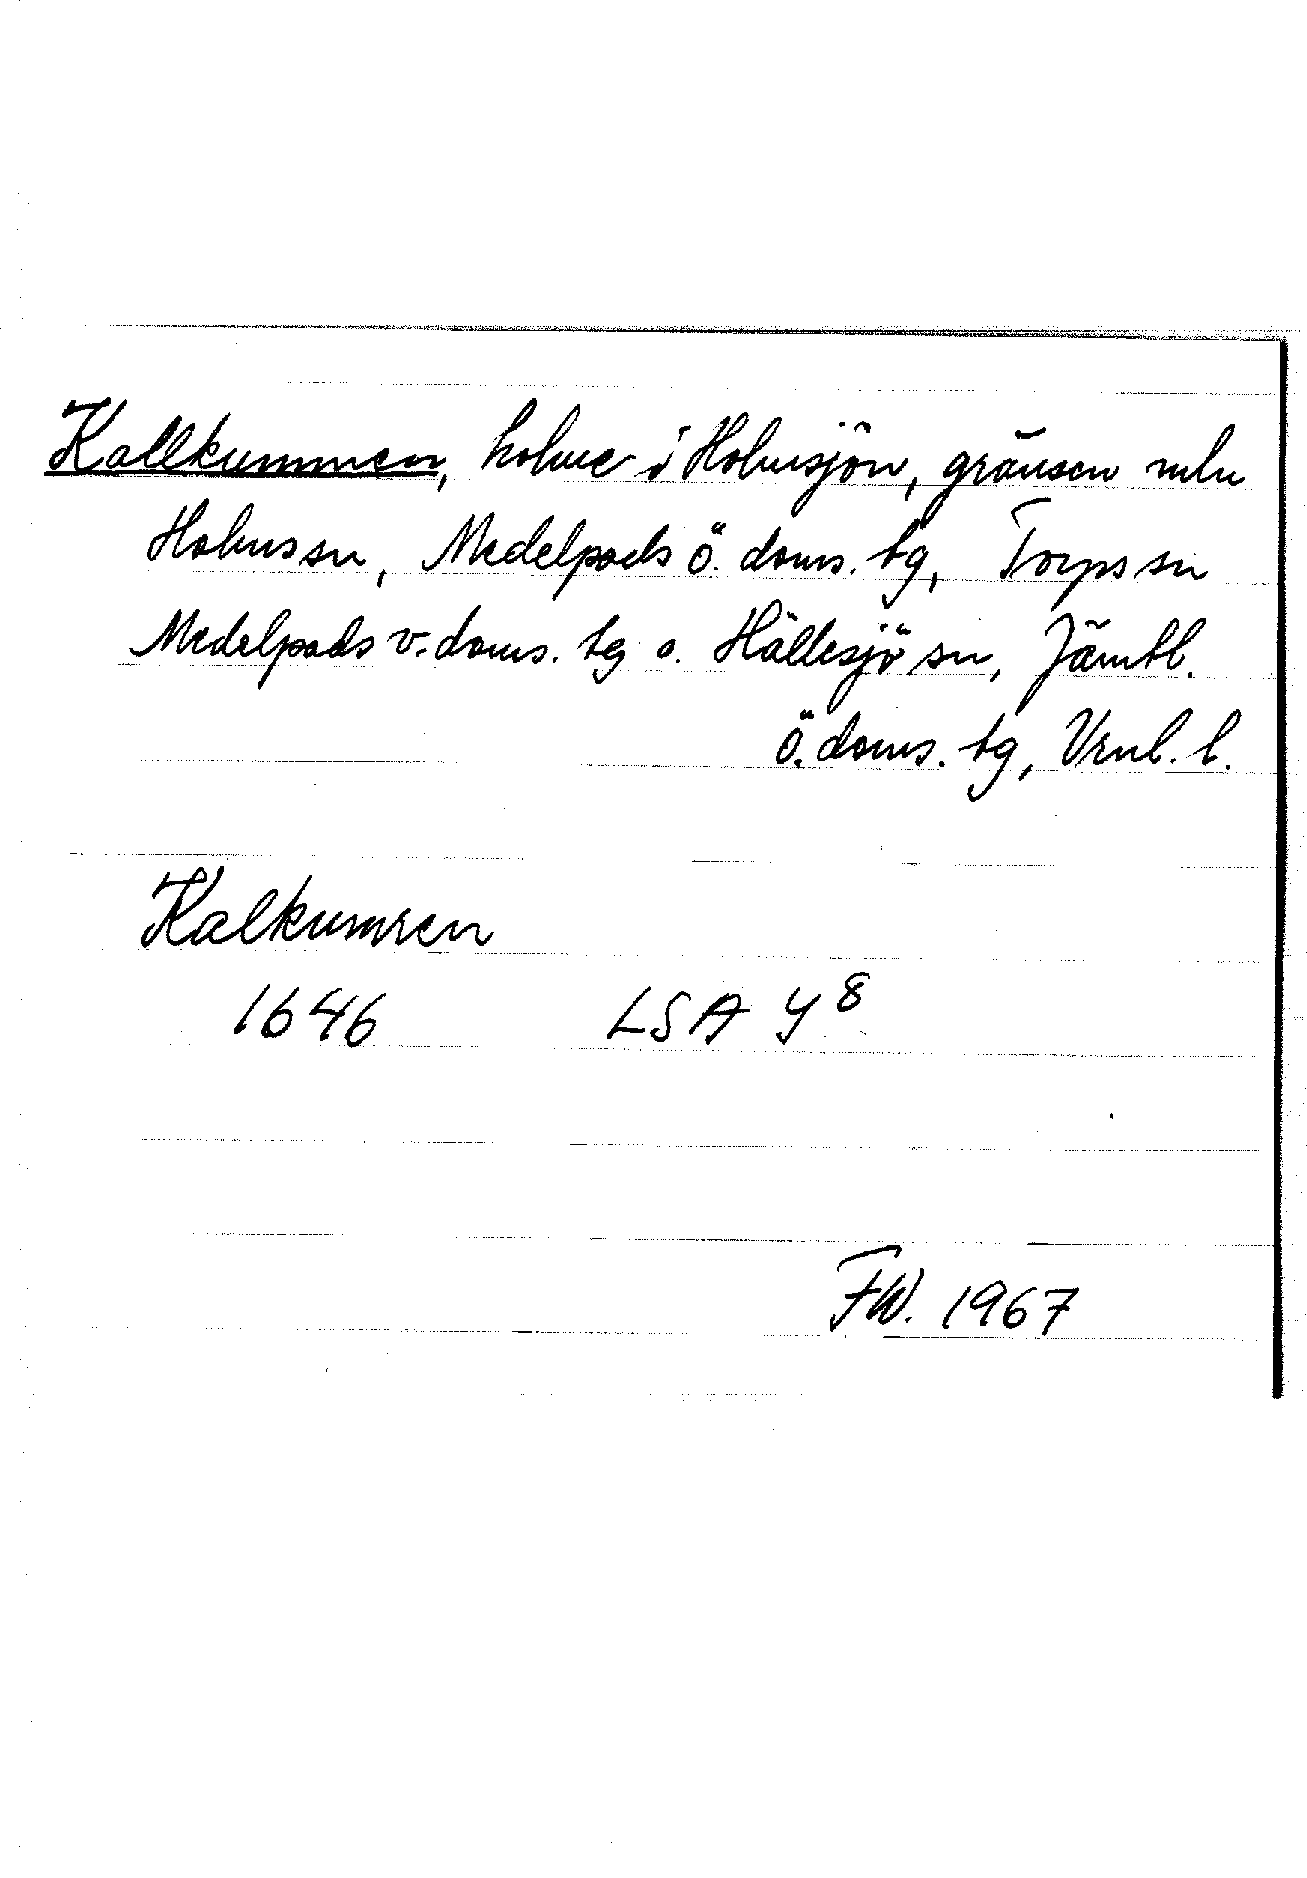 Kallkummen, holme i Holmsjön, gränsen mln
Holms sn, Medelpads ö. doms. tg, Torps sn
Medelpads v. doms. tg o. Hällesjö sn, Jämtl.
ö. doms. tg, Vrnl. l.
Kalkumren
1646 LSA Y 8
FW. 1967